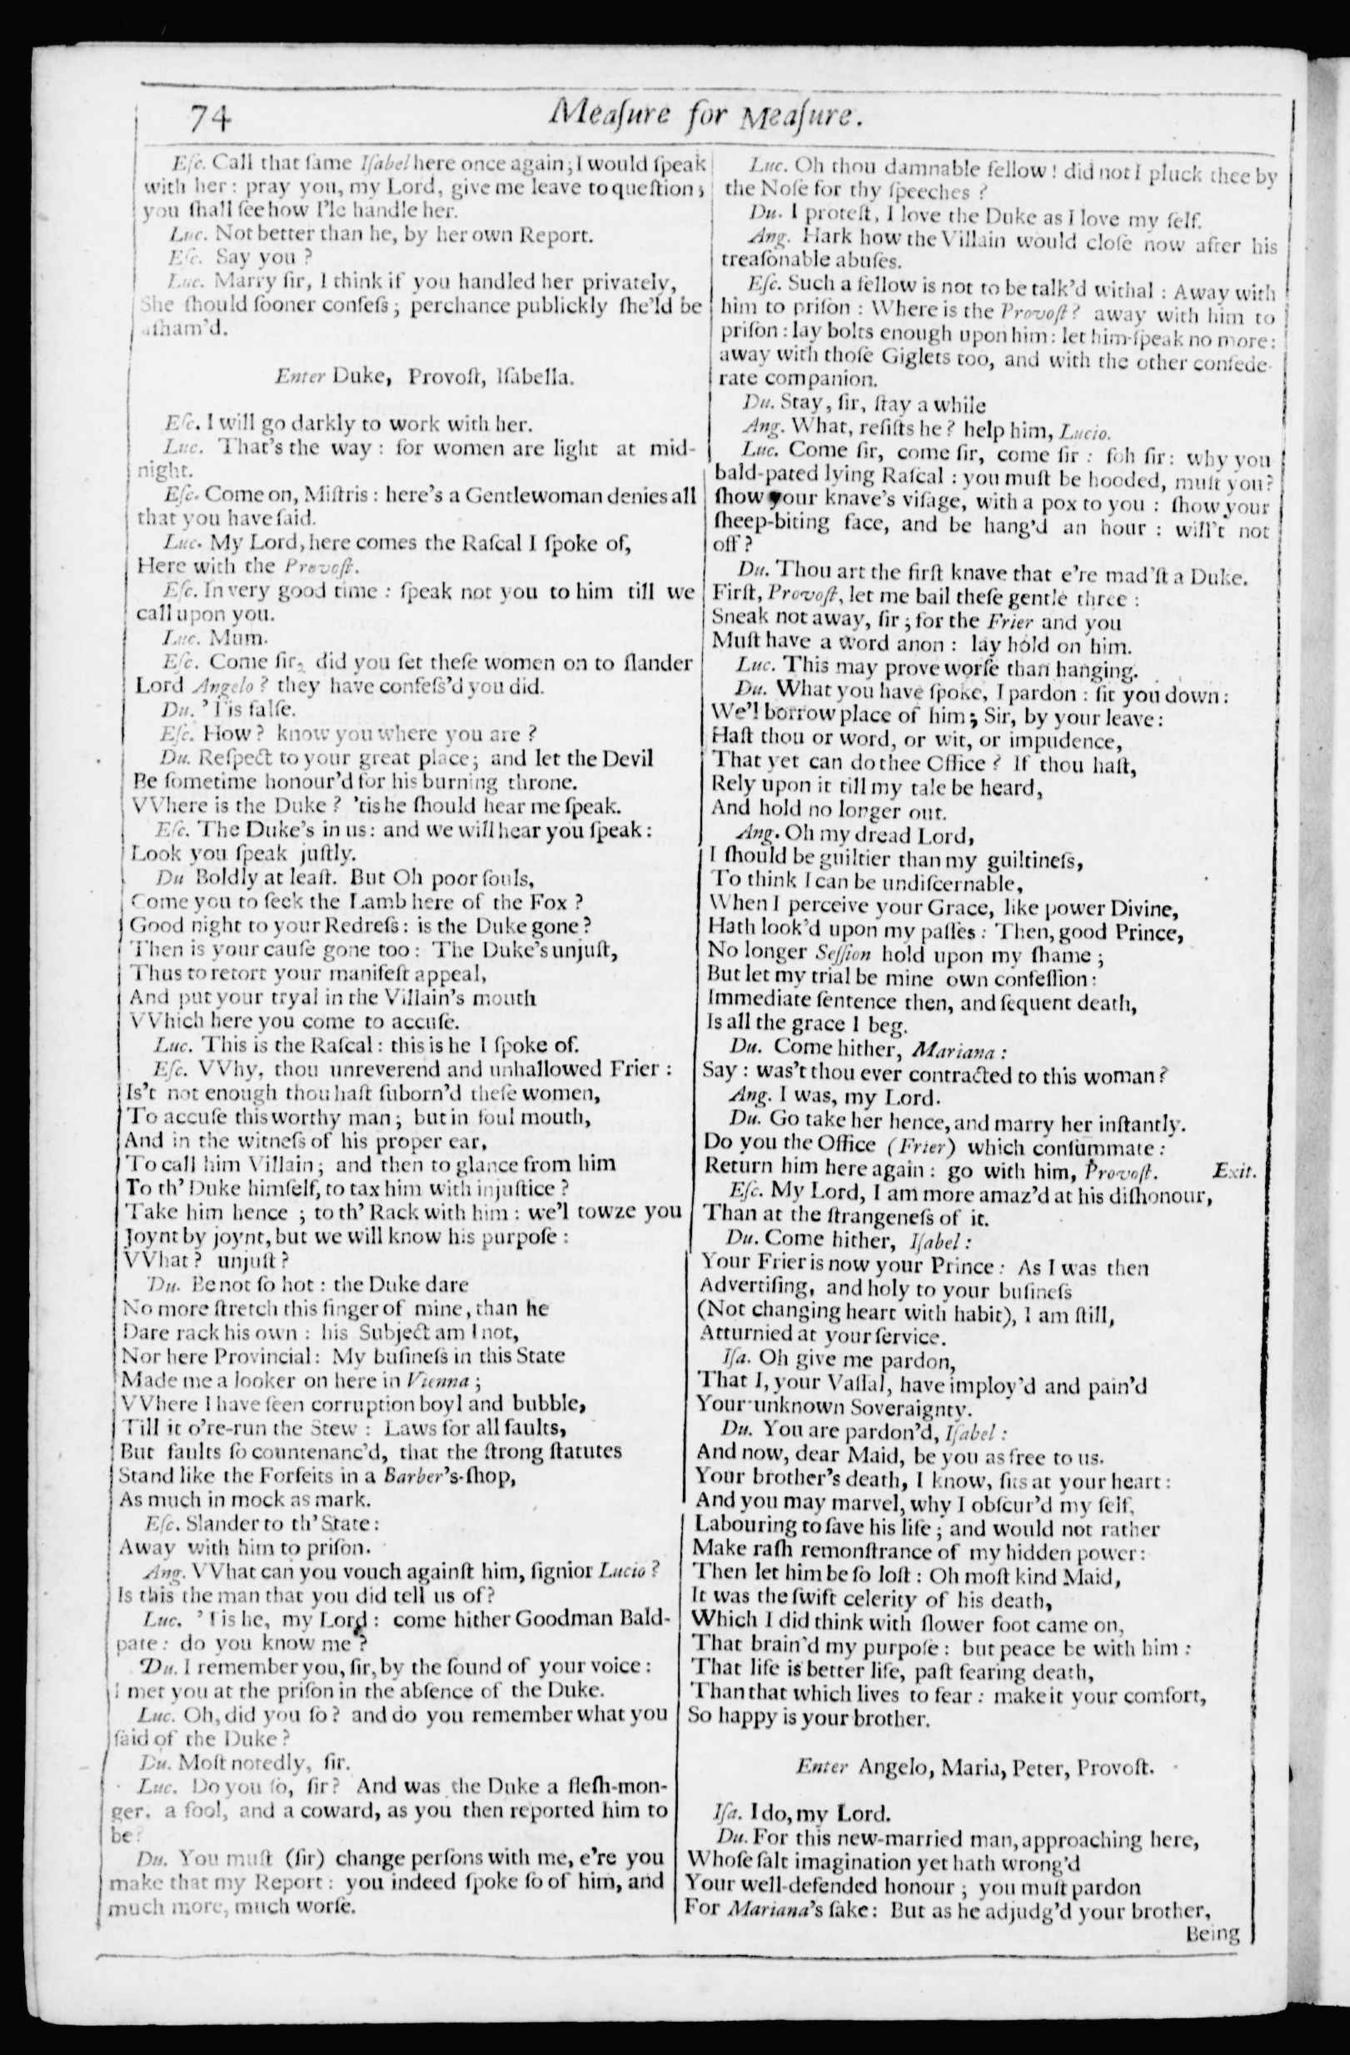 74
Meaſure for Meaſure.
Eſc. Call that ſame Iſabel here once again; I would ſpeak
with her: pray you, my Lord, give me leave to queſtion;
you ſhall ſee how I'le handle her.
Luc. Not better than he, by her own Report.
Eſc. Say you?
Luc. Marry ſir, I think if you handled her privately,
She ſhould ſooner confeſs; perchance publickly ſhe'ld be
aſham'd.
Enter Duke, Provoſt, Iſabella.
Eſc. I will go darkly to work with her.
Luc. That's the way: for women are light at mid-
night.
Eſc. Come on, Miſtris: here's a Gentlewoman denies all
that you have ſaid.
Luc. My Lord, here comes the Raſcal I ſpoke of,
Here with the Provoſt.
Eſc. In very good time: ſpeak not you to him till we
call upon you.
Luc. Mum.
Eſc. Come ſir, did you ſet theſe women on to ſlander
Lord Angelo? they have confeſs'd you did.
Du. 'Tis falſe.
Eſc. How? know you where you are?
Du. Reſpect to your great place; and let the Devil
Be ſometime honour'd for his burning throne.
VVhere is the Duke? 'tis he ſhould hear me ſpeak.
Eſc. The Duke's in us: and we will hear you ſpeak:
Look you ſpeak juſtly.
Du Boldly at leaſt. But Oh poor ſouls,
Come you to ſeek the Lamb here of the Fox?
Good night to your Redreſs: is the Duke gone?
Then is your cauſe gone too: The Duke's unjuſt,
Thus to retort your manifeſt appeal,
And put your tryal in the Villain's mouth
VVhich here you come to accuſe.
Luc. This is the Raſcal: this is he I ſpoke of.
Eſc. VVhy, thou unreverend and unhallowed Frier:
Is't not enough thou haſt ſuborn'd theſe women,
To accuſe this worthy man; but in foul mouth,
And in the witneſs of his proper ear,
To call him Villain; and then to glance from him
To th' Duke himſelf, to tax him with injuſtice?
Take him hence; to th' Rack with him: we'l towze you
Joynt by joynt, but we will know his purpoſe:
VVhat? unjuſt?
Du. Be not ſo hot: the Duke dare
No more ſtretch this finger of mine, than he
Dare rack his own: his Subject am I not,
Nor here Provincial: My buſineſs in this State
Made me a looker on here in Vienna;
VVhere I have ſeen corruption boyl and bubble,
Till it o're-run the Stew: Laws for all faults,
But faults ſo countenanc'd, that the ſtrong ſtatutes
Stand like the Forfeits in a Barber's-ſhop,
As much in mock as mark.
Eſc. Slander to th' State:
Away with him to priſon.
Ang. VVhat can you vouch againſt him, ſignior Lucio?
Is this the man that you did tell us of?
Luc. 'Tis he, my Lord: come hither Goodman Bald-
pate: do you know me?
Du. I remember you, ſir, by the ſound of your voice:
I met you at the priſon in the abſence of the Duke.
Luc. Oh, did you ſo? and do you remember what you
ſaid of the Duke?
Du. Moſt notedly, ſir.
Luc. Do you ſo, ſir? And was the Duke a fleſh-mon-
ger, a fool, and a coward, as you then reported him to
be?
Du. You muſt (ſir) change perſons with me, e're you
make that my Report: you indeed ſpoke ſo of him, and
much more, much worſe.
Luc. Oh thou damnable fellow! did not I pluck thee by
the Noſe for thy ſpeeches?
Du. I proteſt, I love the Duke as I love my ſelf.
Ang. Hark how the Villain would cloſe now after his
treaſonable abuſes.
Eſc. Such a fellow is not to be talk'd withal: Away with
him to priſon: Where is the Provoſt? away with him to
priſon: lay bolts enough upon him: let him ſpeak no more:
away with thoſe Giglets too, and with the other confede-
rate companion.
Du. Stay, ſir, ſtay a while
Ang. What, reſiſts he? help him, Lucio.
Luc. Come ſir, come ſir, come ſir: foh ſir: why you
bald-pated lying Raſcal: you muſt be hooded, muſt you?
ſhow your knave's viſage, with a pox to you: ſhow your
ſheep-biting face, and be hang'd an hour: will't not
off?
Du. Thou art the firſt knave that e're mad'ſt a Duke.
Firſt, Provoſt, let me bail theſe gentle three:
Sneak not away, ſir; for the Frier and you
Muſt have a word anon: lay hold on him.
Luc. This may prove worſe than hanging.
Du. What you have ſpoke, I pardon: ſit you down:
We'l borrow place of him; Sir, by your leave:
Haſt thou or word, or wit, or impudence,
That yet can do thee Office? If thou haſt,
Rely upon it till my tale be heard,
And hold no longer out.
Ang. Oh my dread Lord,
I ſhould be guiltier than my guiltineſs,
To think I can be undiſcernable,
When I perceive your Grace, like power Divine,
Hath look'd upon my paſſes: Then, good Prince,
No longer Seſſion hold upon my ſhame;
But let my trial be mine own confeſſion:
Immediate ſentence then, and ſequent death,
Is all the grace I beg.
Du. Come hither, Mariana:
Say: was't thou ever contracted to this woman?
Ang. I was, my Lord.
Du. Go take her hence, and marry her inſtantly.
Do you the Office (Frier) which conſummate:
Return him here again: go with him, Provoſt. Exit.
Eſc. My Lord, I am more amaz'd at his diſhonour,
Than at the ſtrangeneſs of it.
Du. Come hither, Iſabel:
Your Frier is now your Prince: As I was then
Advertiſing, and holy to your buſineſs
(Not changing heart with habit), I am ſtill,
Atturnied at your ſervice.
Iſa. Oh give me pardon,
That I, your Vaſſal, have imploy'd and pain'd
Your unknown Soveraignty.
Du. You are pardon'd, Iſabel:
And now, dear Maid, be you as free to us.
Your brother's death, I know, ſits at your heart:
And you may marvel, why I obſcur'd my ſelf,
Labouring to ſave his life; and would not rather
Make raſh remonſtrance of my hidden power:
Then let him be ſo loſt: Oh moſt kind Maid,
It was the ſwift celerity of his death,
Which I did think with ſlower foot came on,
That brain'd my purpoſe: but peace be with him:
That life is better life, paſt fearing death,
Than that which lives to fear: make it your comfort,
So happy is your brother.
Enter Angelo, Maria, Peter, Provoſt.
Iſa. I do, my Lord.
Du. For this new-married man, approaching here,
Whoſe ſalt imagination yet hath wrong'd
Your well-defended honour; you muſt pardon
For Mariana's ſake: But as he adjudg'd your brother,
Being